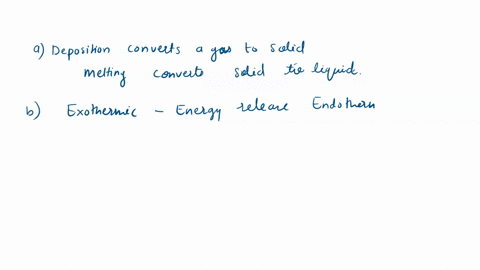 a) Deposition converts a gas to solid
melting converts solid tie liquid.
b) Exothermic - Energy release Endotherm